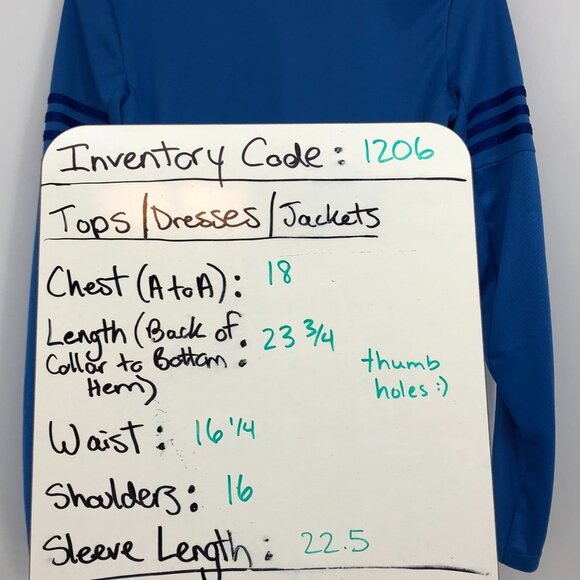 Inventory Code: 1206
Tops/Dresses/Jackets
Chest (A to A): 18
Length (Back of
Collar to Bottom : 23 3/4
Hem)
thumb
holes :)
Waist: 16 1/4
Shoulders: 16
Sleeve Length: 22.5